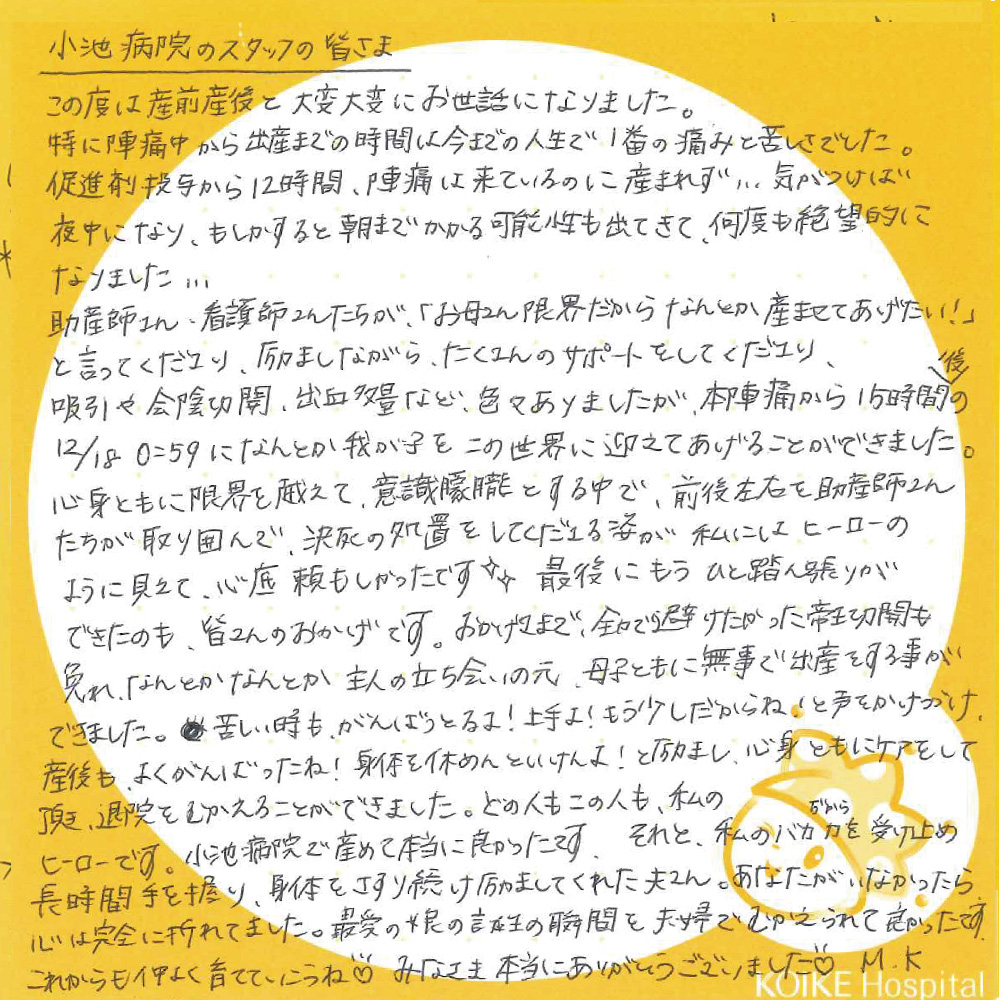 小池病院のスタッフの皆さま
この度は産前産後と大変大変にお世話になりました。
特に陣痛中から出産までの時間は今までの人生で1番の痛みと苦しさでした。
促進剤投与から12時間、陣痛は来ているのに産まれず… 気がつけば
夜中になり、もしかすると朝までかかる可能性も出てきて、何度も絶望的に
なりました…
助産師さん・看護師さんたちが、「お母さん限界だからなんとか産ませてあげたい!」
と言ってくださり、励ましながら、たくさんのサポートをしてくださり、
吸引や会陰切開、出血多量など、色々ありましたが、本陣痛から15時間後の
12/18 0:59になんとか我が子をこの世界に迎えてあげることができました。
心身ともに限界を越えて、意識朦朧とする中で、前後左右を助産師さん
たちが取り囲んで、決死の処置をしてくださる姿が私にはヒーローの
ように見えて、心底頼もしかったです✧✧ 最後にもうひと踏ん張りが
できたのも、皆さんのおかげです。おかげさまで、全力で避けたかった帝王切開も
免れ、なんとかなんとか主人の立ち会いの元、母子ともに無事で出産をする事が
できました。苦しい時も、がんばっとるよ!上手よ!もう少しだからね!と声をかけつづけ、
産後も、よくがんばったね!身体を休めんといけんよ!と励まし、心身ともにケアをして
頂き、退院をむかえることができました。どの人もこの人も、私の
ヒーローです。小池病院で産めて本当に良かったです。それと、私のバカ力を受け止め
ぢから
長時間手を握り、身体をさすり続け励ましてくれた夫さん。あなたがいなかったら
心は完全に折れてました。最愛の娘の誕生の瞬間を夫婦でむかえられて良かったです。
これからも仲よく育てていこうね♡ みなさま本当にありがとうございました♡ M.K
KOIKE Hospital